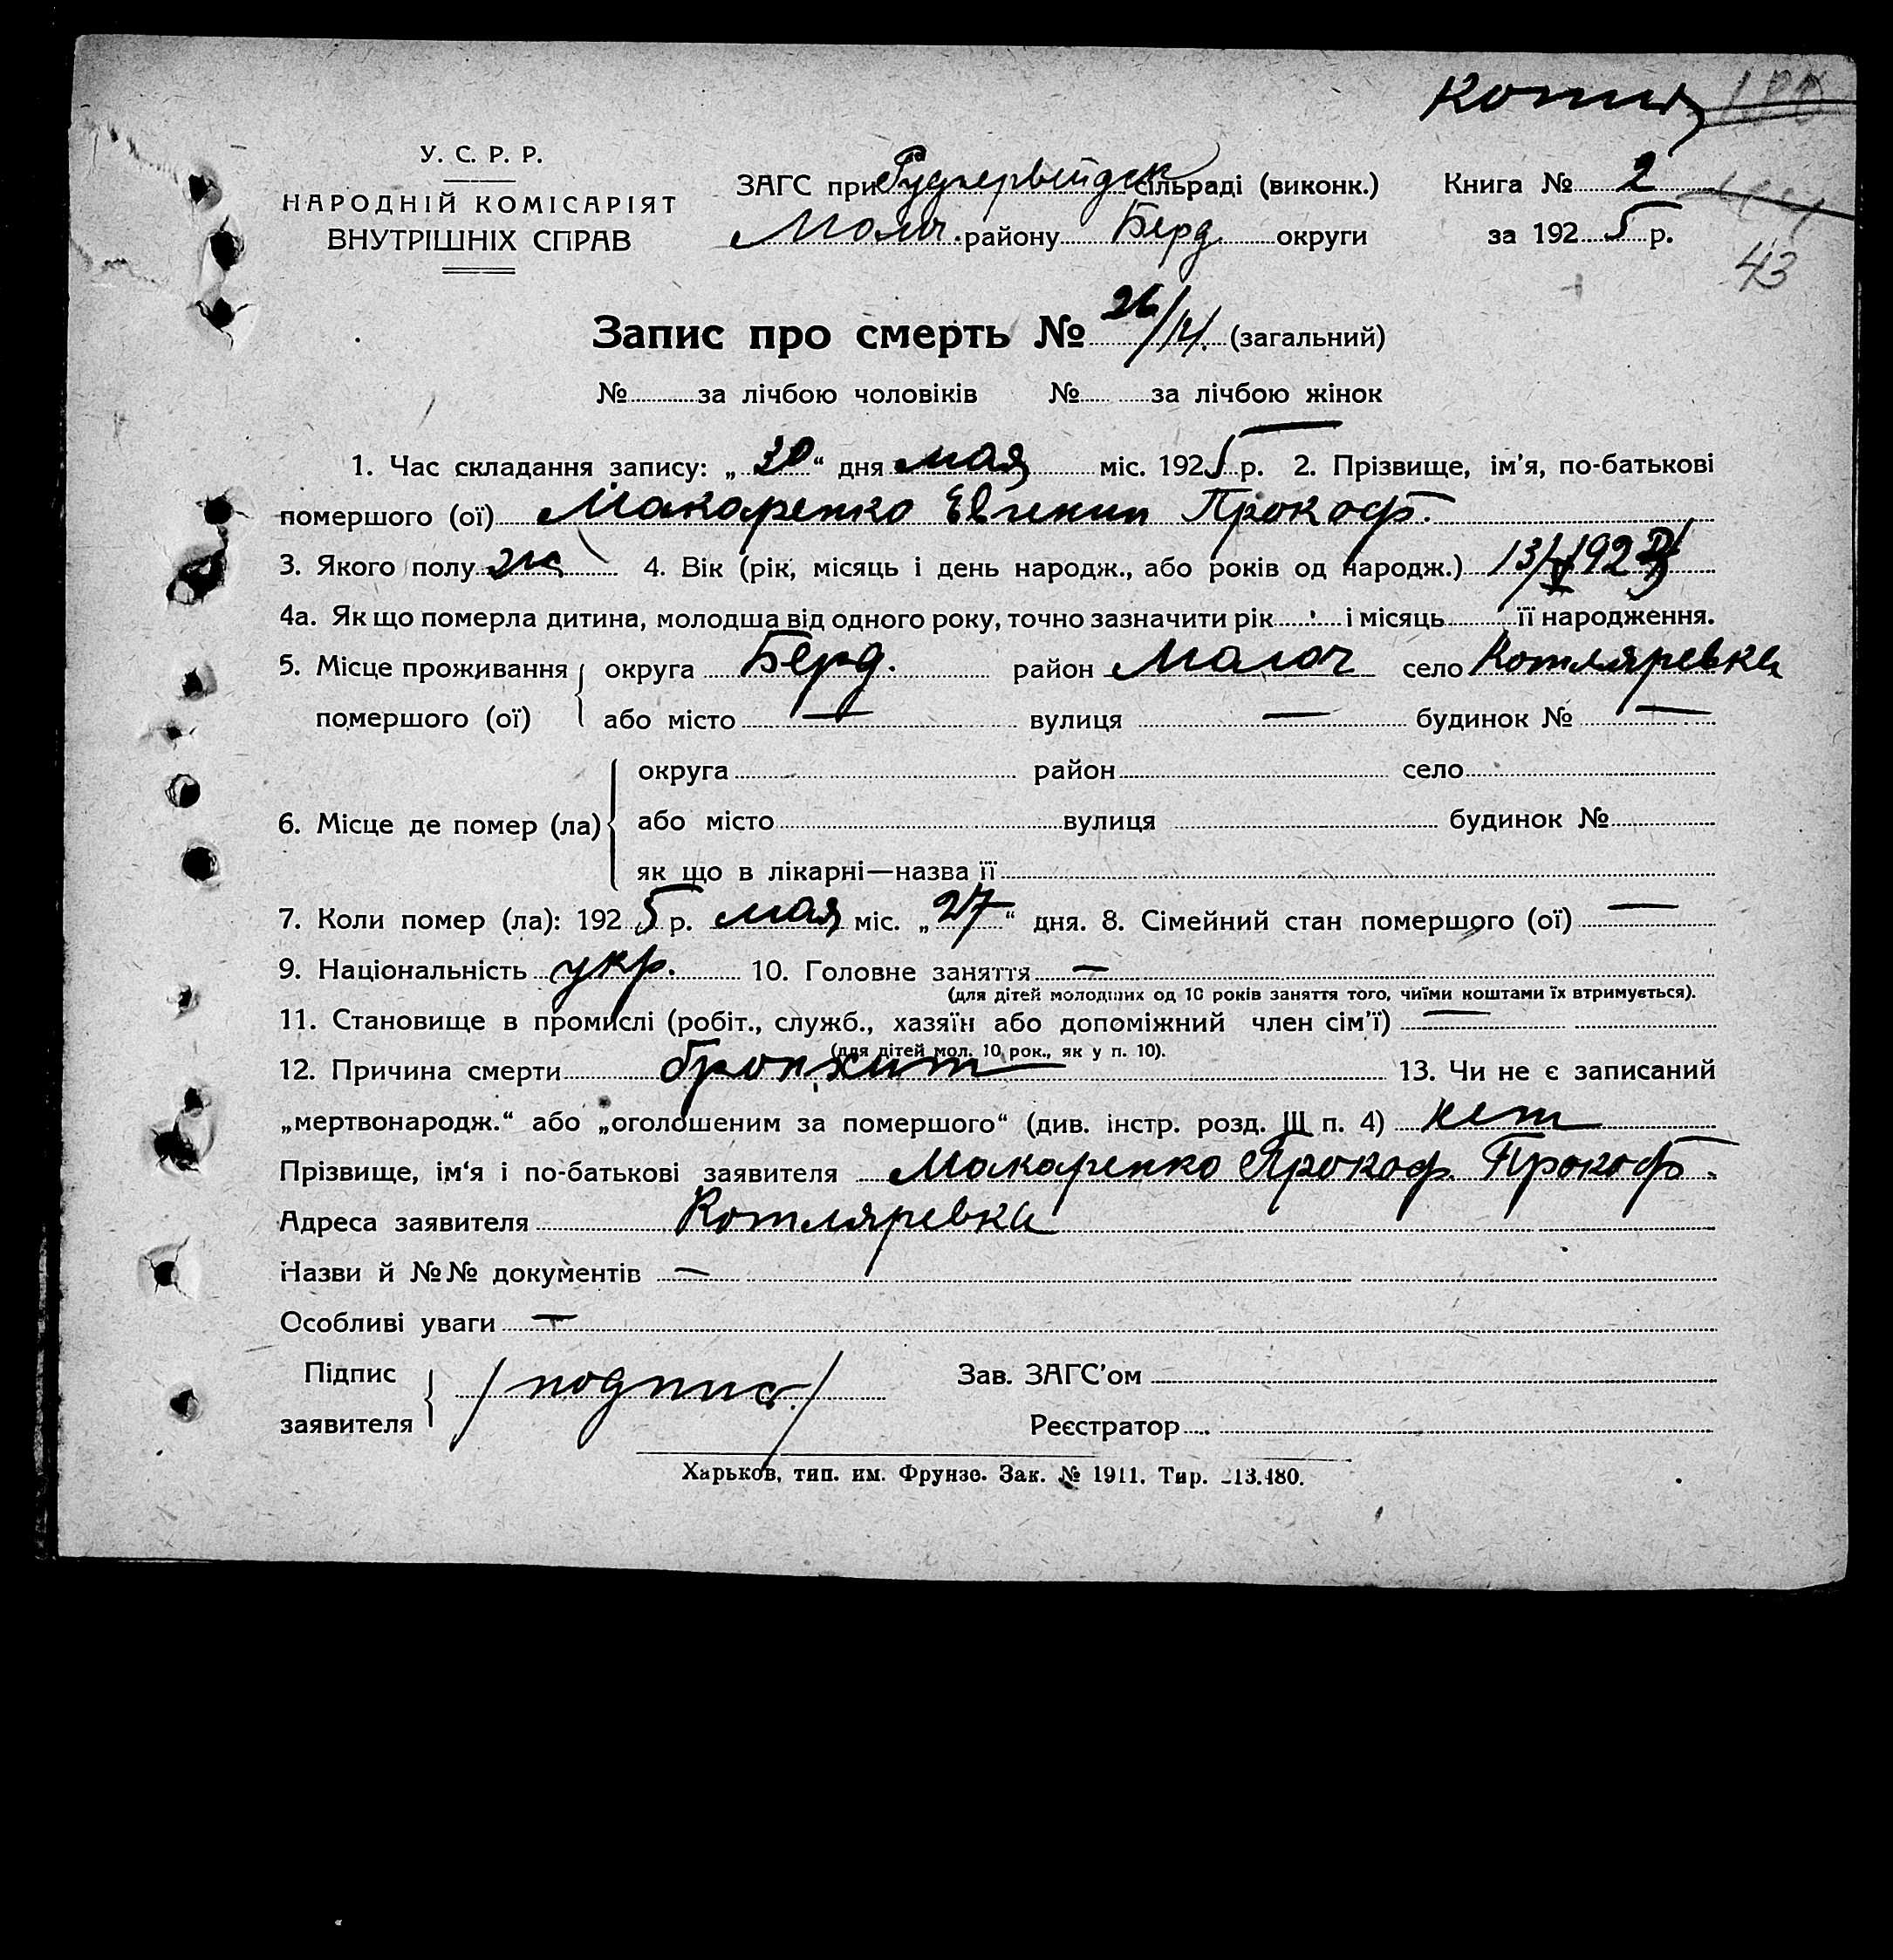 Копия
У. С. Р. Р.
НАРОДНІЙ КОМІСАРІЯТ
ВНУТРІШНІХ СПРАВ
ЗАГС при Руднервейдск сільраді (виконк.)
Молоч. району Берд. округи
Книга № 2
за 1925 р.
43
Запис про смерть № 26/14. (загальний)
№ за лічбою чоловіків № за лічбою жінок
1. Час складання запису: „30“ дня мая міс. 1925 р. 2. Прізвище, ім'я, по-батькові
помершого (ої) Макаренко Евгении Прокоф.
3. Якого полу ж 4. Вік (рік, місяць і день народж., або років од народж.) 13/V 192
4а. Як що померла дитина, молодша від одного року, точно зазначити рік і місяць її народження.
5. Місце проживання округа Берд. район Молоч село Котляревка
помершого (ої) або місто — вулиця — будинок № —
округа район село
6. Місце де помер (ла) або місто вулиця будинок №
як що в лікарні—назва її
7. Коли помер (ла): 1925 р. мая міс. „27“ дня. 8. Сімейний стан помершого (ої) —
9. Національність укр. 10. Головне заняття —
(для дітей молодших од 10 років заняття того, чиїми коштами їх втримується).
11. Становище в промислі (робіт., служб., хазяїн або допоміжний член сім'ї) —
(для дітей мол. 10 рок., як у п. 10).
12. Причина смерти бронхит 13. Чи не є записаний
„мертвонародж.“ або „оголошеним за помершого“ (див. інстр. розд. III п. 4) нет
Прізвище, ім'я і по-батькові заявителя Макаренко Прокоф. Прокоф.
Адреса заявителя Котляревка
Назви й №№ документів —
Особливі уваги —
Підпис
заявителя /подпис./
Зав. ЗАГС'ом
Реєстратор
Харьков, тип. им. Фрунзе. Зак. № 1911. Тир. 213.480.